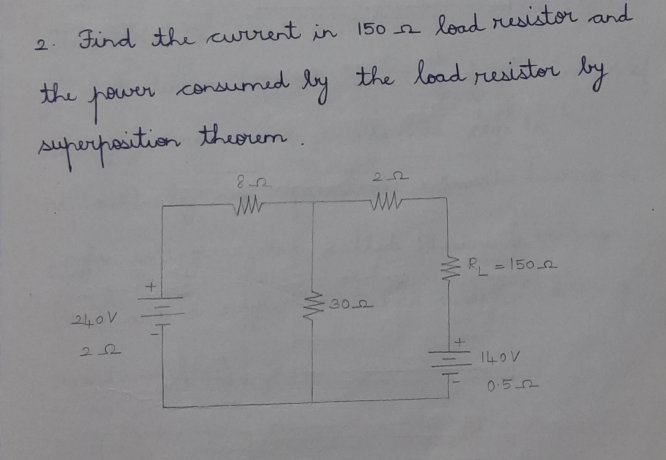 2. Find the current in 150 Ω load resistor and
the power consumed by the load resistor by
superposition theorem.
8 Ω
2 Ω
R_L = 150 Ω
30 Ω
+
240V
2 Ω
-
+
140V
-
0.5 Ω